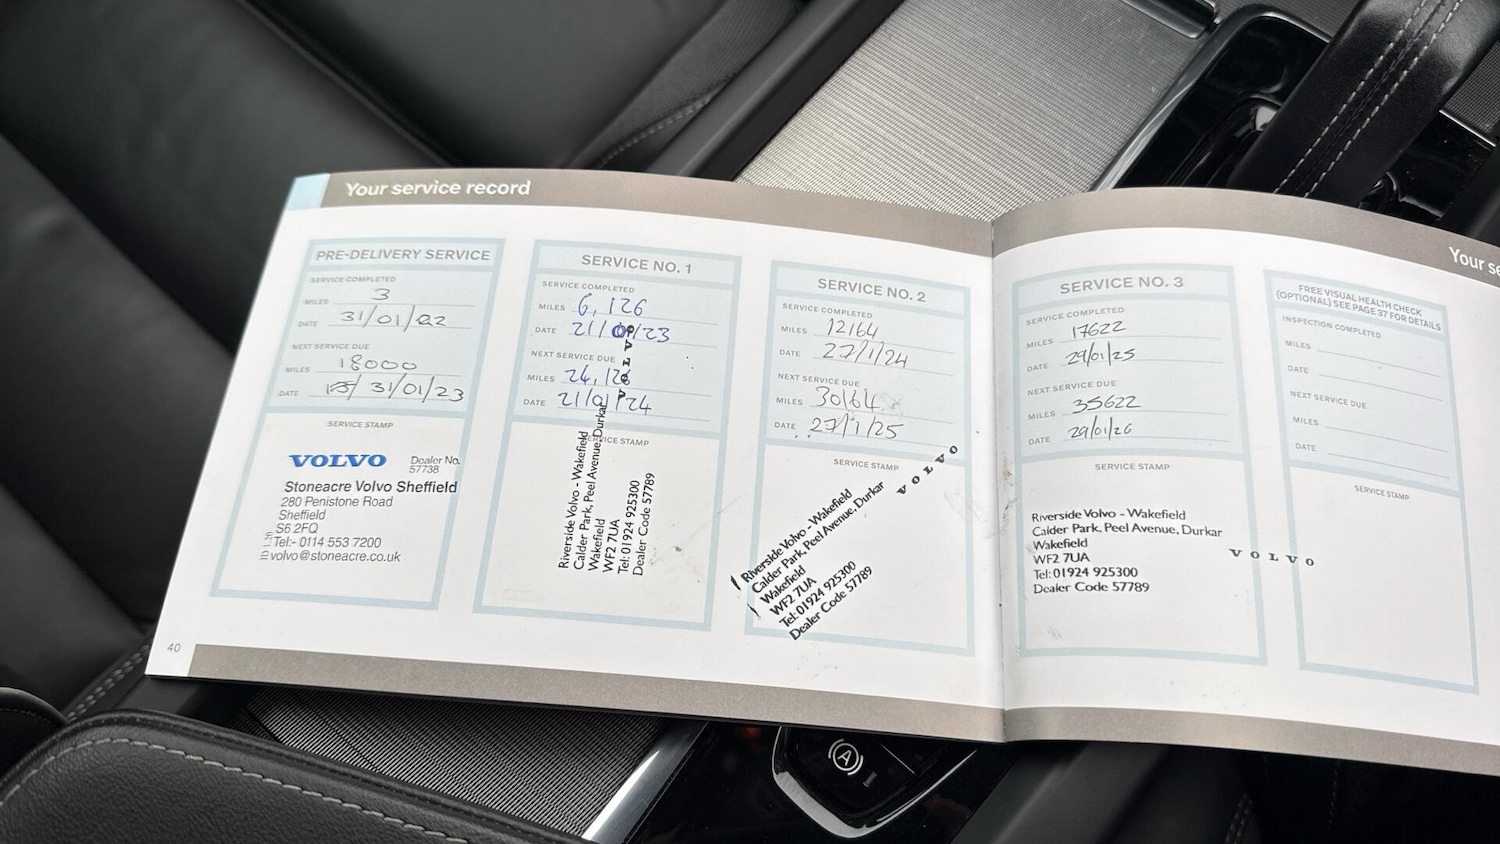 Your service record
PRE-DELIVERY SERVICE
SERVICE COMPLETED
MILES 3
DATE 31/01/22
NEXT SERVICE DUE
MILES 18000
DATE 31/01/23
SERVICE STAMP
VOLVO Dealer No.
57738
Stoneacre Volvo Sheffield
280 Penistone Road
Sheffield
S6 2FQ
Tel:- 0114 553 7200
volvo@stoneacre.co.uk
SERVICE NO. 1
SERVICE COMPLETED
MILES 6,126
DATE 21/01/23
NEXT SERVICE DUE
MILES 24,126
DATE 21/01/24
SERVICE STAMP
VOLVO
Riverside Volvo - Wakefield
Calder Park, Peel Avenue, Durkar
Wakefield
WF2 7UA
Tel: 01924 925300
Dealer Code 57789
SERVICE NO. 2
SERVICE COMPLETED
MILES 12164
DATE 27/1/24
NEXT SERVICE DUE
MILES 30164
DATE 27/1/25
SERVICE STAMP
VOLVO
Riverside Volvo - Wakefield
Calder Park, Peel Avenue, Durkar
Wakefield
WF2 7UA
Tel: 01924 925300
Dealer Code 57789
40
SERVICE NO. 3
SERVICE COMPLETED
MILES 17622
DATE 29/01/25
NEXT SERVICE DUE
MILES 35622
DATE 29/01/26
SERVICE STAMP
Riverside Volvo - Wakefield
Calder Park, Peel Avenue, Durkar
Wakefield
WF2 7UA
Tel: 01924 925300
Dealer Code 57789
VOLVO
Your se
FREE VISUAL HEALTH CHECK
(OPTIONAL) SEE PAGE 37 FOR DETAILS
INSPECTION COMPLETED
MILES
DATE
NEXT SERVICE DUE
MILES
DATE
SERVICE STAMP
A